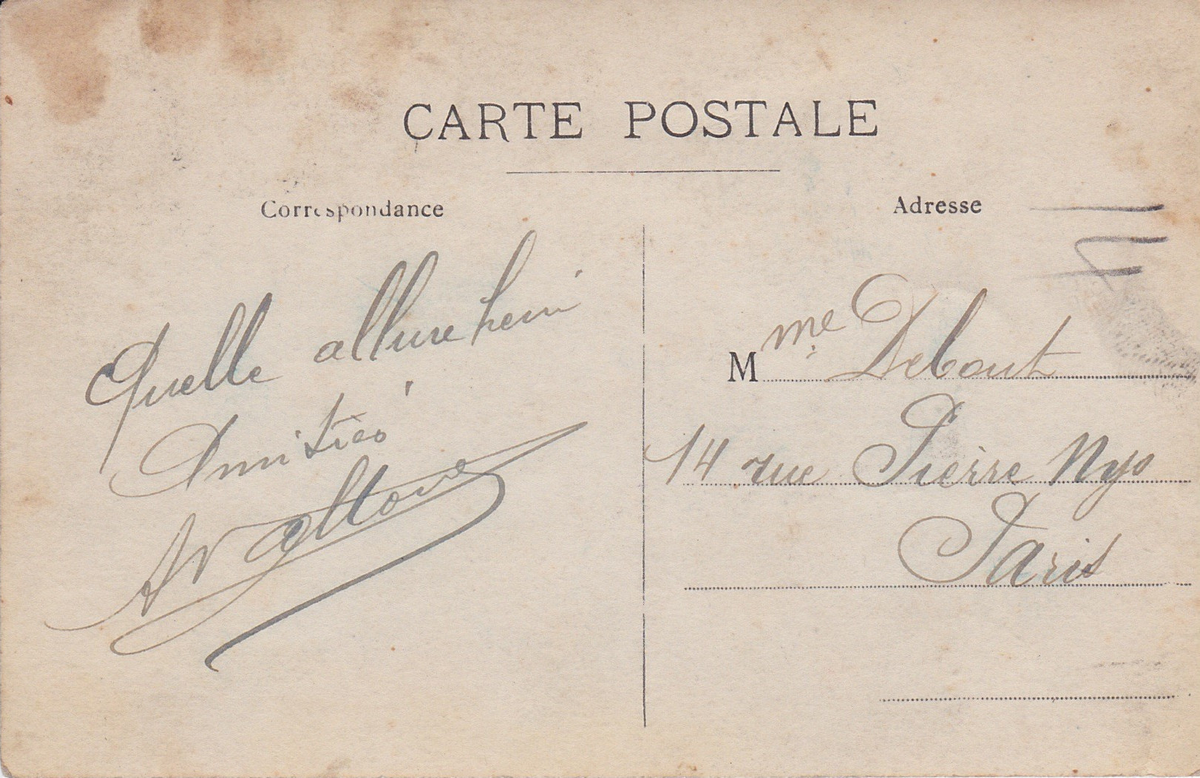 CARTE POSTALE
Correspondance
Adresse
Quelle allure hein
Amitiés
M me Debout
14 rue Pierre Nys
Paris